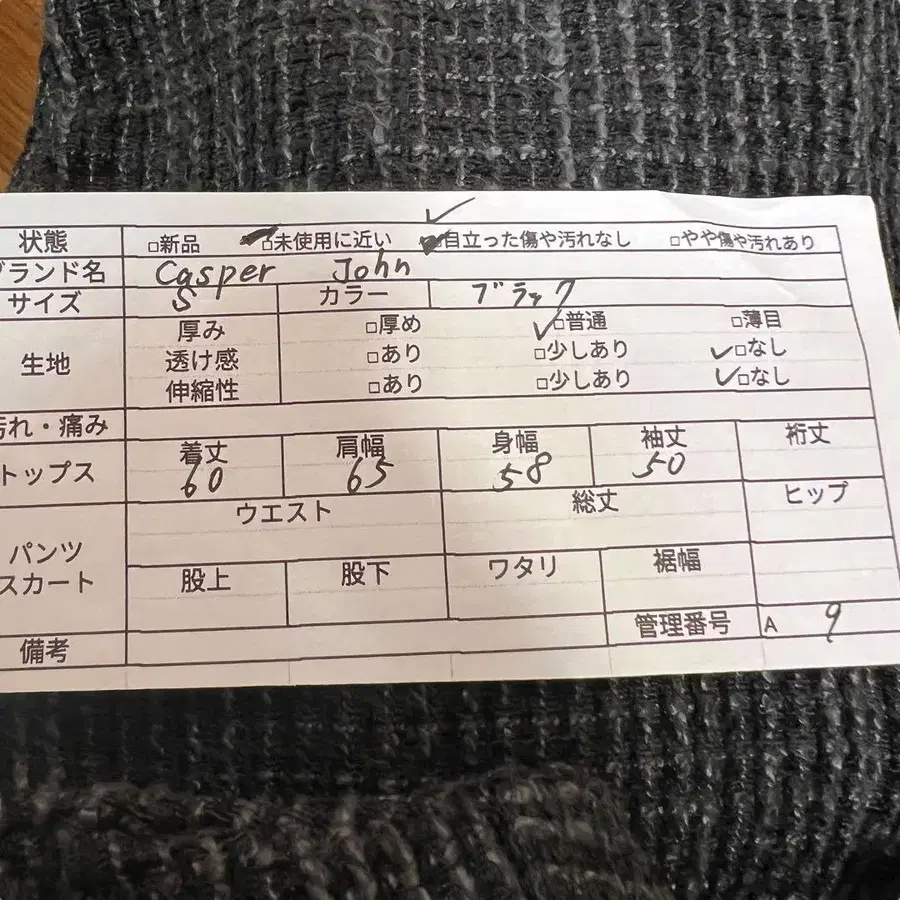 状態 □新品 □未使用に近い 目立った傷や汚れなし □やや傷や汚れあり
ブランド名 Casper John
サイズ S カラー ブラック
生地 厚み □厚め ✓□普通 □薄目
透け感 □あり □少しあり ✓□なし
伸縮性 □あり □少しあり ✓□なし
汚れ・痛み
トップス 着丈 肩幅 身幅 袖丈 裄丈
60 65 58 50
パンツ スカート ウエスト 総丈 ヒップ
股上 股下 ワタリ 裾幅
備考 管理番号 A 9